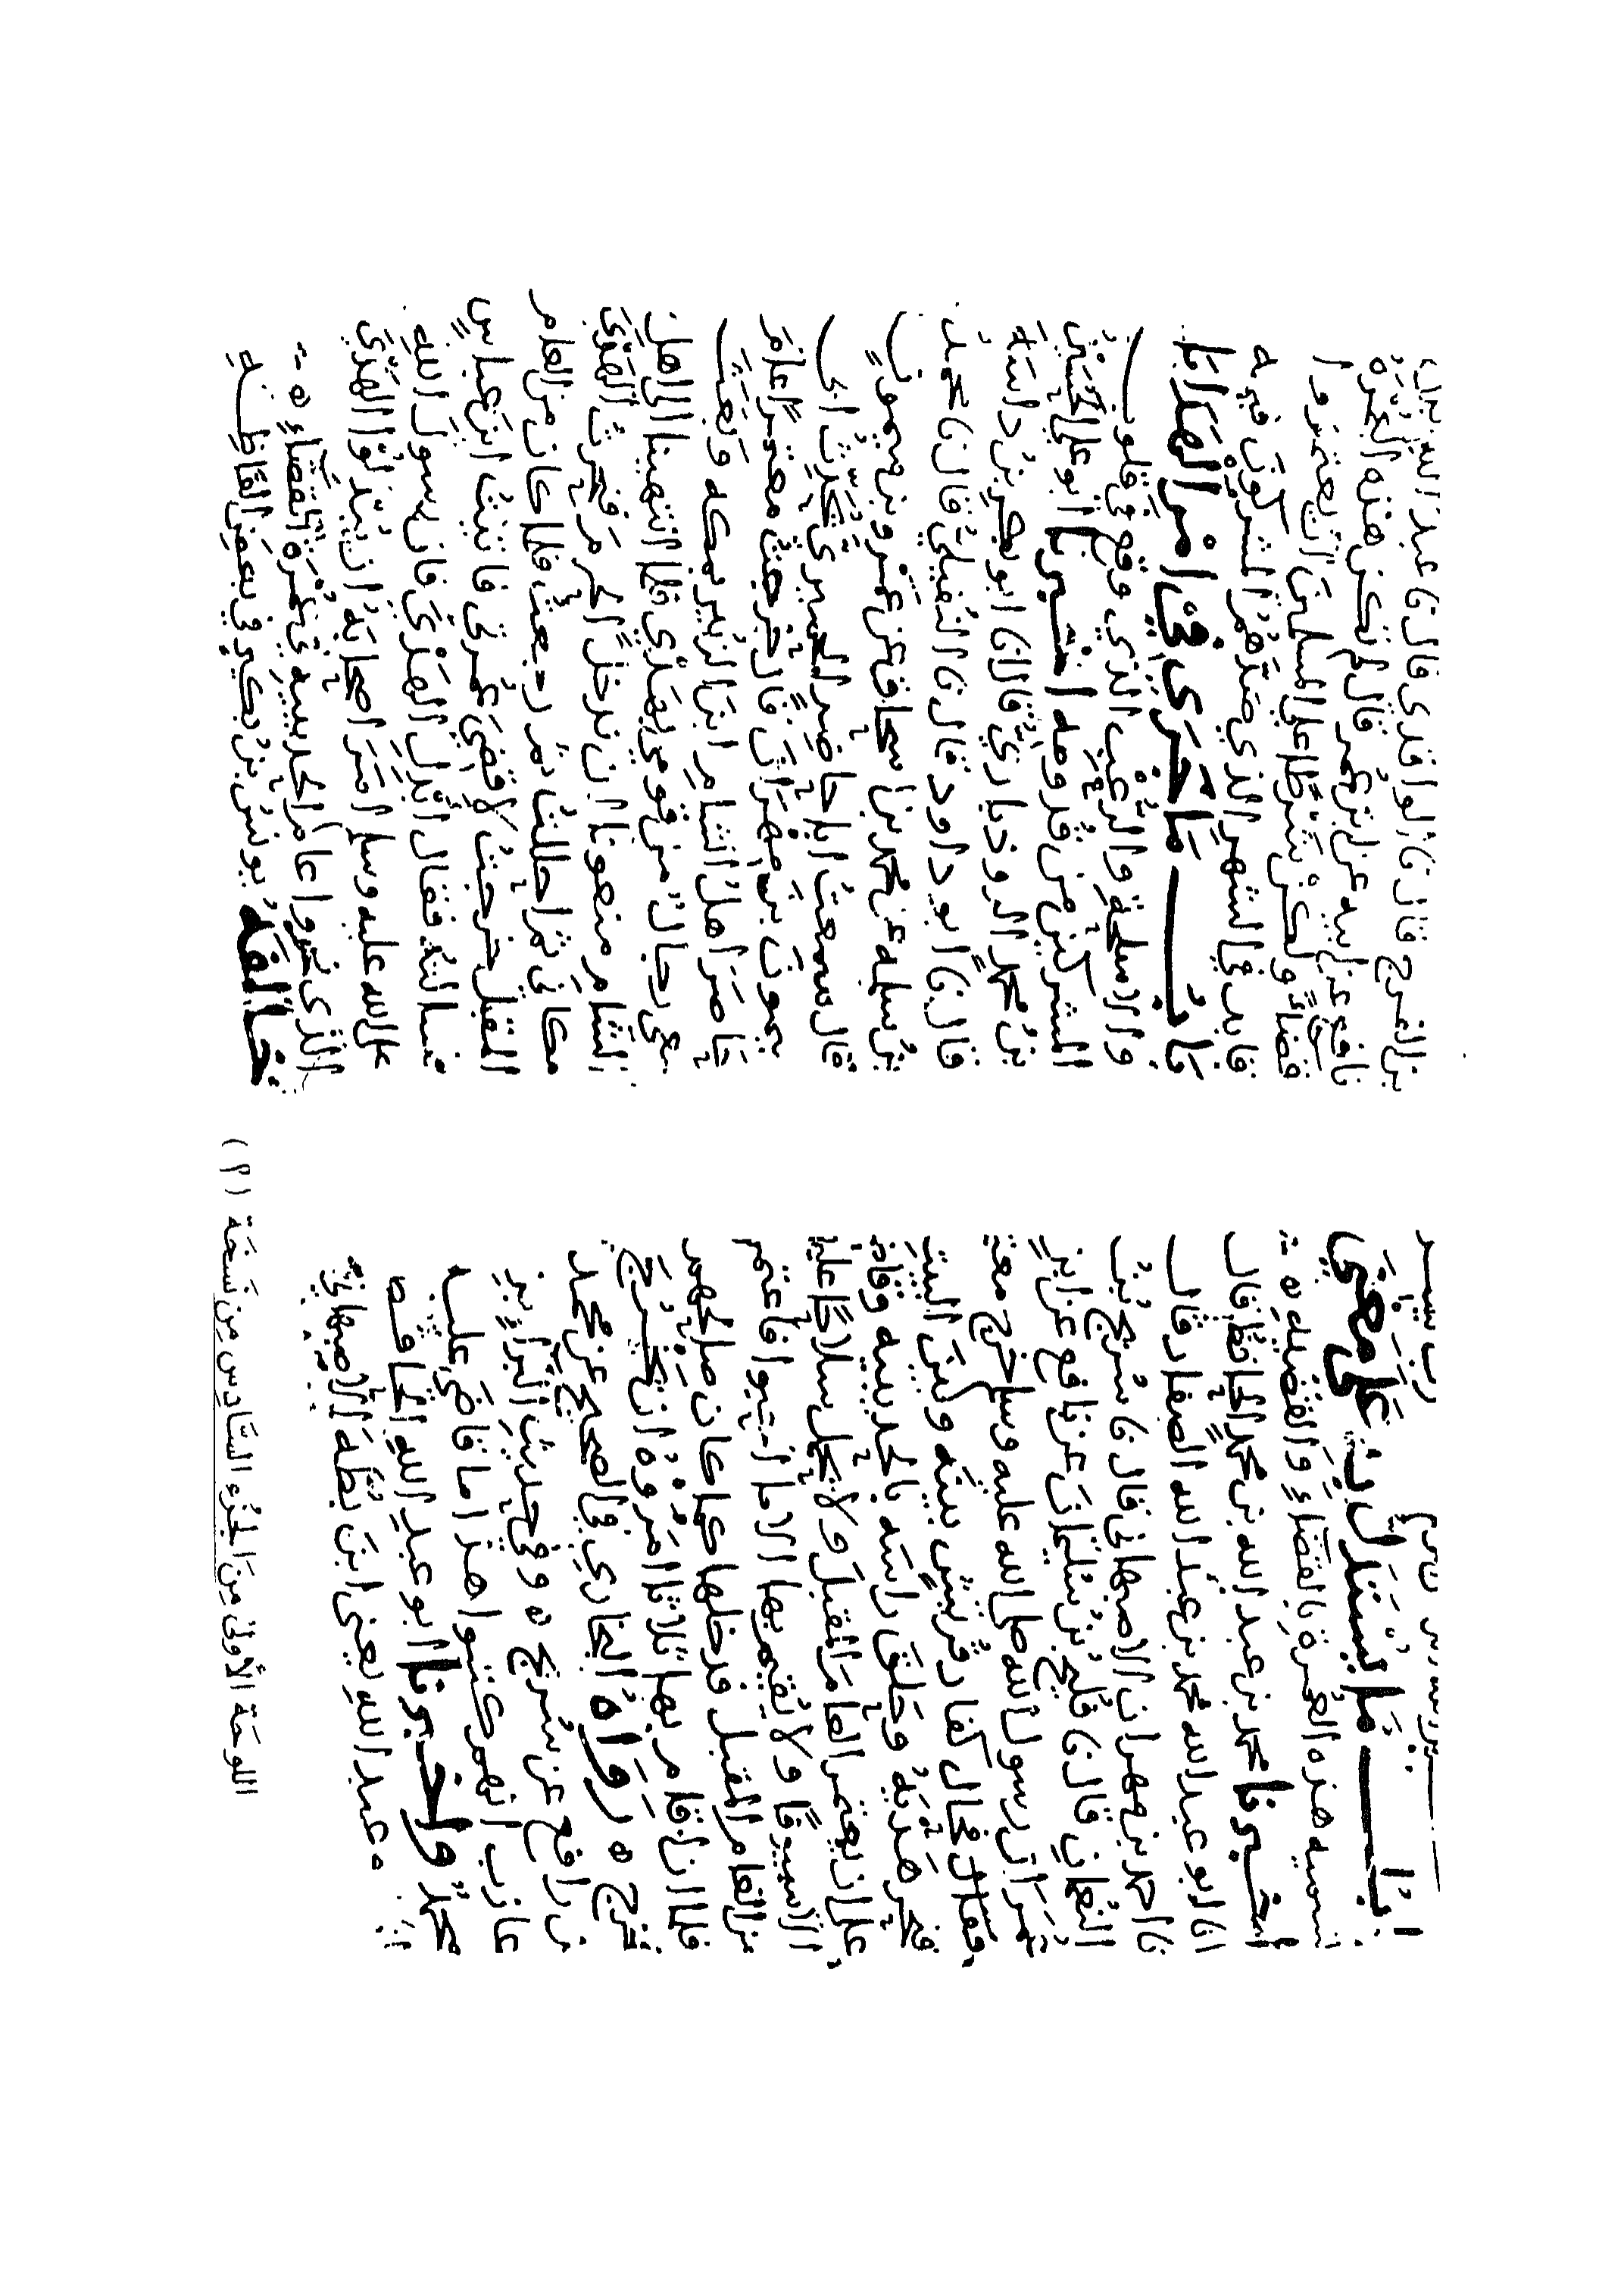 رب يسر
باب ما يستدل به على معنى
تسميه هذه العمرة بالقضاء والقضيه ه
اخبرنا محمد بن عبد الله بن محمد الحافظ قال
انا ابو عبد الله محمد بن عبد الله الصفار قال
نا احمد بن مهران الاصبهاني قال نا سريج بن
النعمان قال نا فليح بن سليمان عن نافع عن ابن
عمر ان رسول الله صلى الله عليه وسلم خرج معتمرا
فحال كفار قريش بينه وبين البيت
فنحر هديه وحلق راسه بالحديبيه وقاضاهم
على ان يعتمر العام المقبل ولا يحمل سلاحا عليهم
الا سيوفا ولا يقيم بها الا ما احبوا فاعتمر
من العام المقبل فدخلها كما كان صالحهم
فلما ان اقام بها ثلاثا امروه ان يخرج
فخرج ه رواه البخاري في الصحيح عن محمد
بن رافع عن سريج ه وفي حديث البراء بن
عازب انهم كتبوا هذا ما قاضى عليه
محمد واخبرنا ابو عبد الله الحافظ
عبد الله يعني ابن بطه الاصبهاني
بن الفرج قال نا الواقدي قال نا عبد الله بن
نافع عن ابيه عن ابن عمر قال لم تكن هذه العمرة
قضاء ولكن شرطا على المسلمين ان يعتمروا
قابل في الشهر الذي صدهم المشركون فيه
باب ما جرى في امر الهدايا
والاسلحة والرعب الذي وقع في قلوب
المشركين من قدومه اخبرنا ابو علي الحسين
بن محمد الروذباري قال انا ابو بكر بن داسة
قال نا ابو داود قال نا النفيلي قال نا محمد
بن سلمه عن محمد بن اسحاق عن عمرو بن ميمون
قال سمعت ابا حاضر الحميري يحدث ابي
ميمون بن مهران قال خرجت معتمرا عام
حاصر اهل الشام ابن الزبير بمكه وبعث
معي رجال من قومي بهدي فلما انتهينا الى اهل
الشام منعونا ان ندخل الحرم فنحرت الهدي
مكاني ثم احللت ثم رجعت فلما كان من العام
المقبل خرجت لاقضي عمرتي فاتيت ابن عباس
فسالته فقال ابدل الهدي فان رسول الله
صلى الله عليه وسلم امر اصحابه ان يبدلوا الهدي
الذي نحروا عام الحديبيه في عمرة القضاء ه
خالفه يونس بن بكير في بعض الفاظه
اللوحة الأولى من الجزء السادس من نسخة (م)